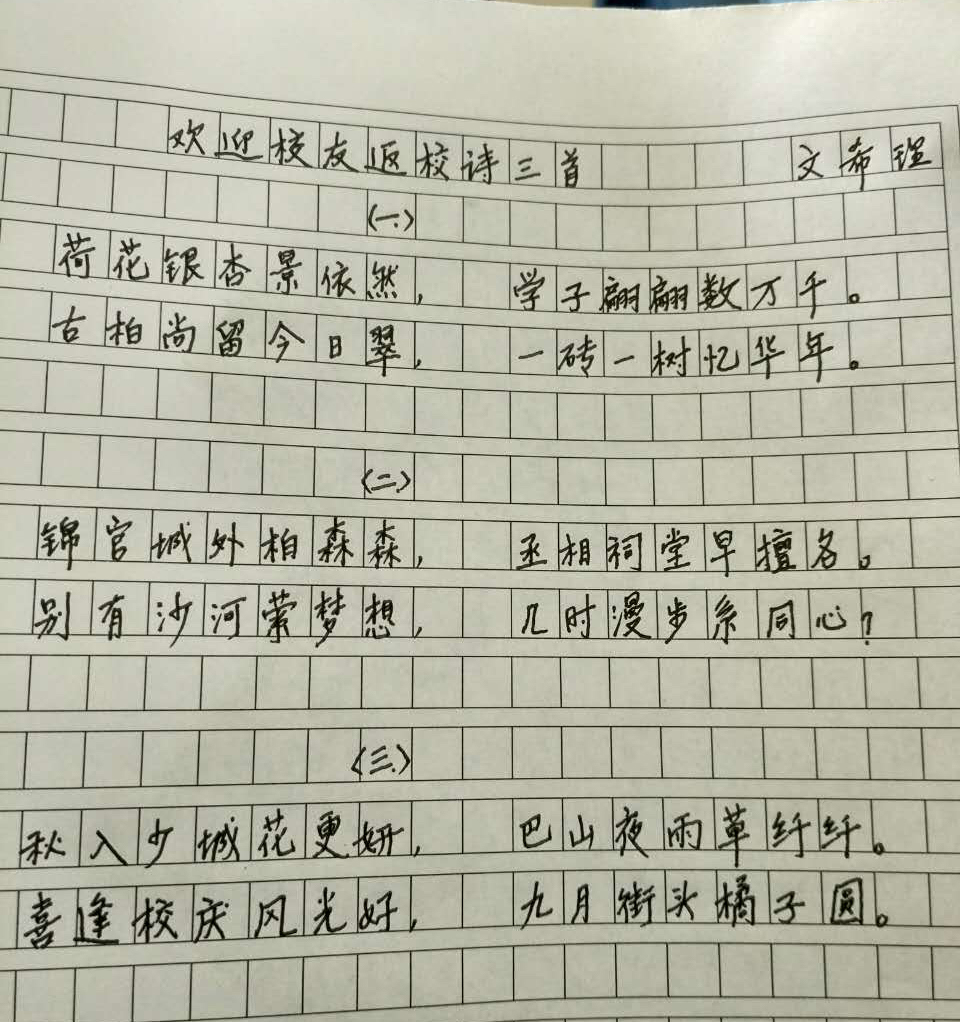 欢迎校友返校诗三首 文希理
(一)
荷花银杏景依然, 学子翩翩数万千。
古柏尚留今日翠, 一砖一树忆华年。
(二)
锦官城外柏森森, 丞相祠堂早擅名。
别有沙河萦梦想, 几时漫步系同心?
(三)
秋入少城花更妍, 巴山夜雨草纤纤。
喜逢校庆风光好, 九月街头橘子圆。